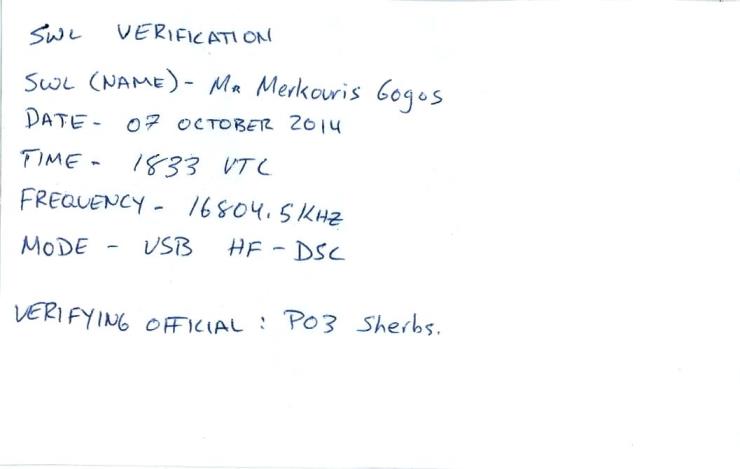 SWL VERIFICATION
SWL (NAME) - MR Merkouris Gogos
DATE - 07 OCTOBER 2014
TIME - 1833 UTC
FREQUENCY - 16804.5 KHZ
MODE - USB HF - DSC
VERIFYING OFFICIAL : PO3 Sherbs.